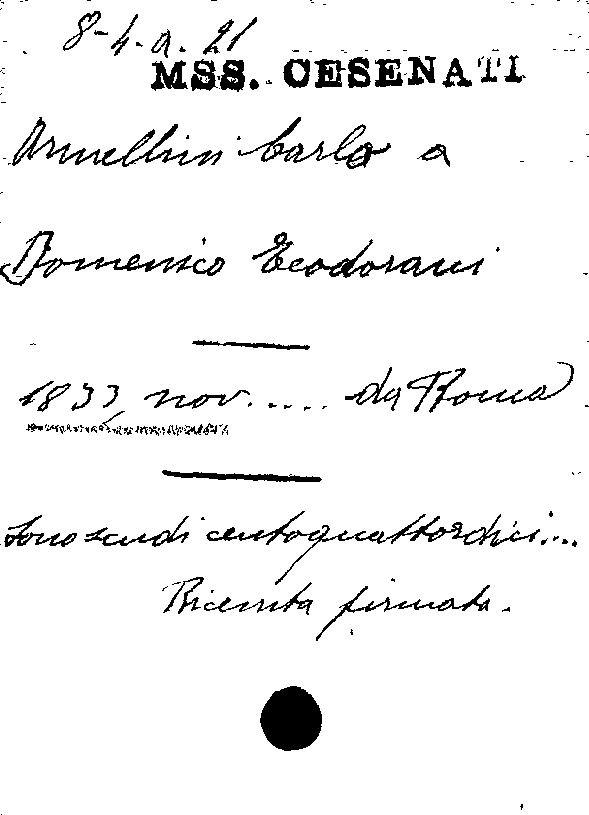 8-4-a. 21
MSS. CESENATI
Armellini Carlo a
Domenico Teodorani
1833, nov. .... da Roma
Sono scudi centoquattordici....
Ricevuta firmata.